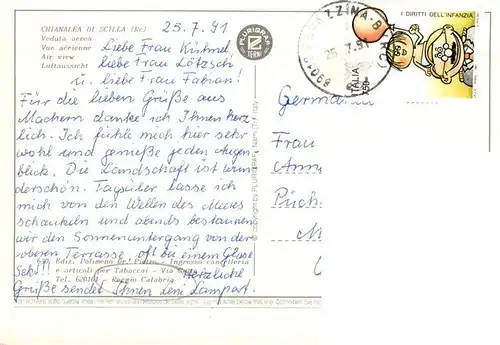 CHIANALEA DI SCILLA (Rc)
Veduta aerea
Vue aérienne
Air view
Luftaussicht
25.7.91
Liebe Frau Kühmel
liebe Frau Lötzsch
u. liebe Frau Fabian!
Für die lieben Grüße aus
Machern danke ich Ihnen herz
lich. Ich fühle mich hier sehr
wohl und genieße jeden Augen
blick. Die Landschaft ist wun
derschön. Tagsüber lasse ich
mich von den Wellen des Meeres
schaukeln und abends bestaunen
wir den Sonnenuntergang von der
oberen Terrasse oft bei einem Glase
Sekt!! Herzliche
Grüße sendet Ihnen Leni Lampart.
Ediz. Polimeno - Ingrosso cancelleria
e articoli per Tabaccai - Via
Tel. - Reggio Calabria
PLURIGRAF
TERNI
© copyright by PLURIGRAF - Narni - Italy
25.7.91
I DIRITTI DELL'INFANZIA
ITALIA
Germania
Frau
Püch